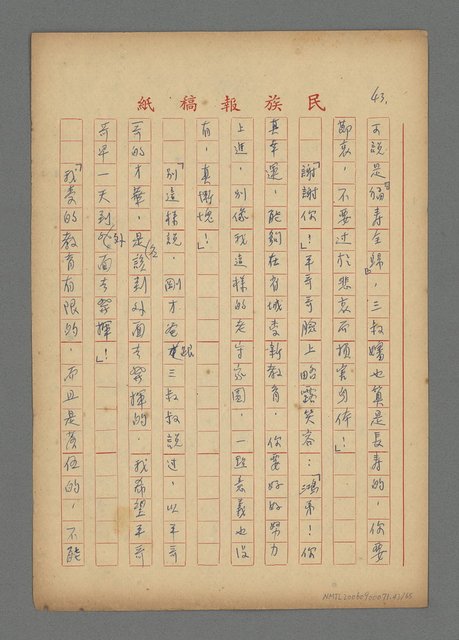 43.
民族報稿紙
可說是福壽全歸」，三叔嬸也算是長壽的，你要
節哀，不要过於悲哀而損害身体！」
「謝謝你！」羊哥哥臉上略露笑容：「鴻弟！你
真幸運，能夠在省城受新教育，你要好好努力
上進，別像我這樣的老守家園，一點意義也没
有，真慚愧！」
「別這樣說，剛才爸跟三叔叔說过，以羊哥
哥的才華，是該到外面去發揮的，我希望羊哥
哥早一天到外面去發揮！」
「我受的教育有限的，而且是舊的，不能
NMTL20060900071.43/65